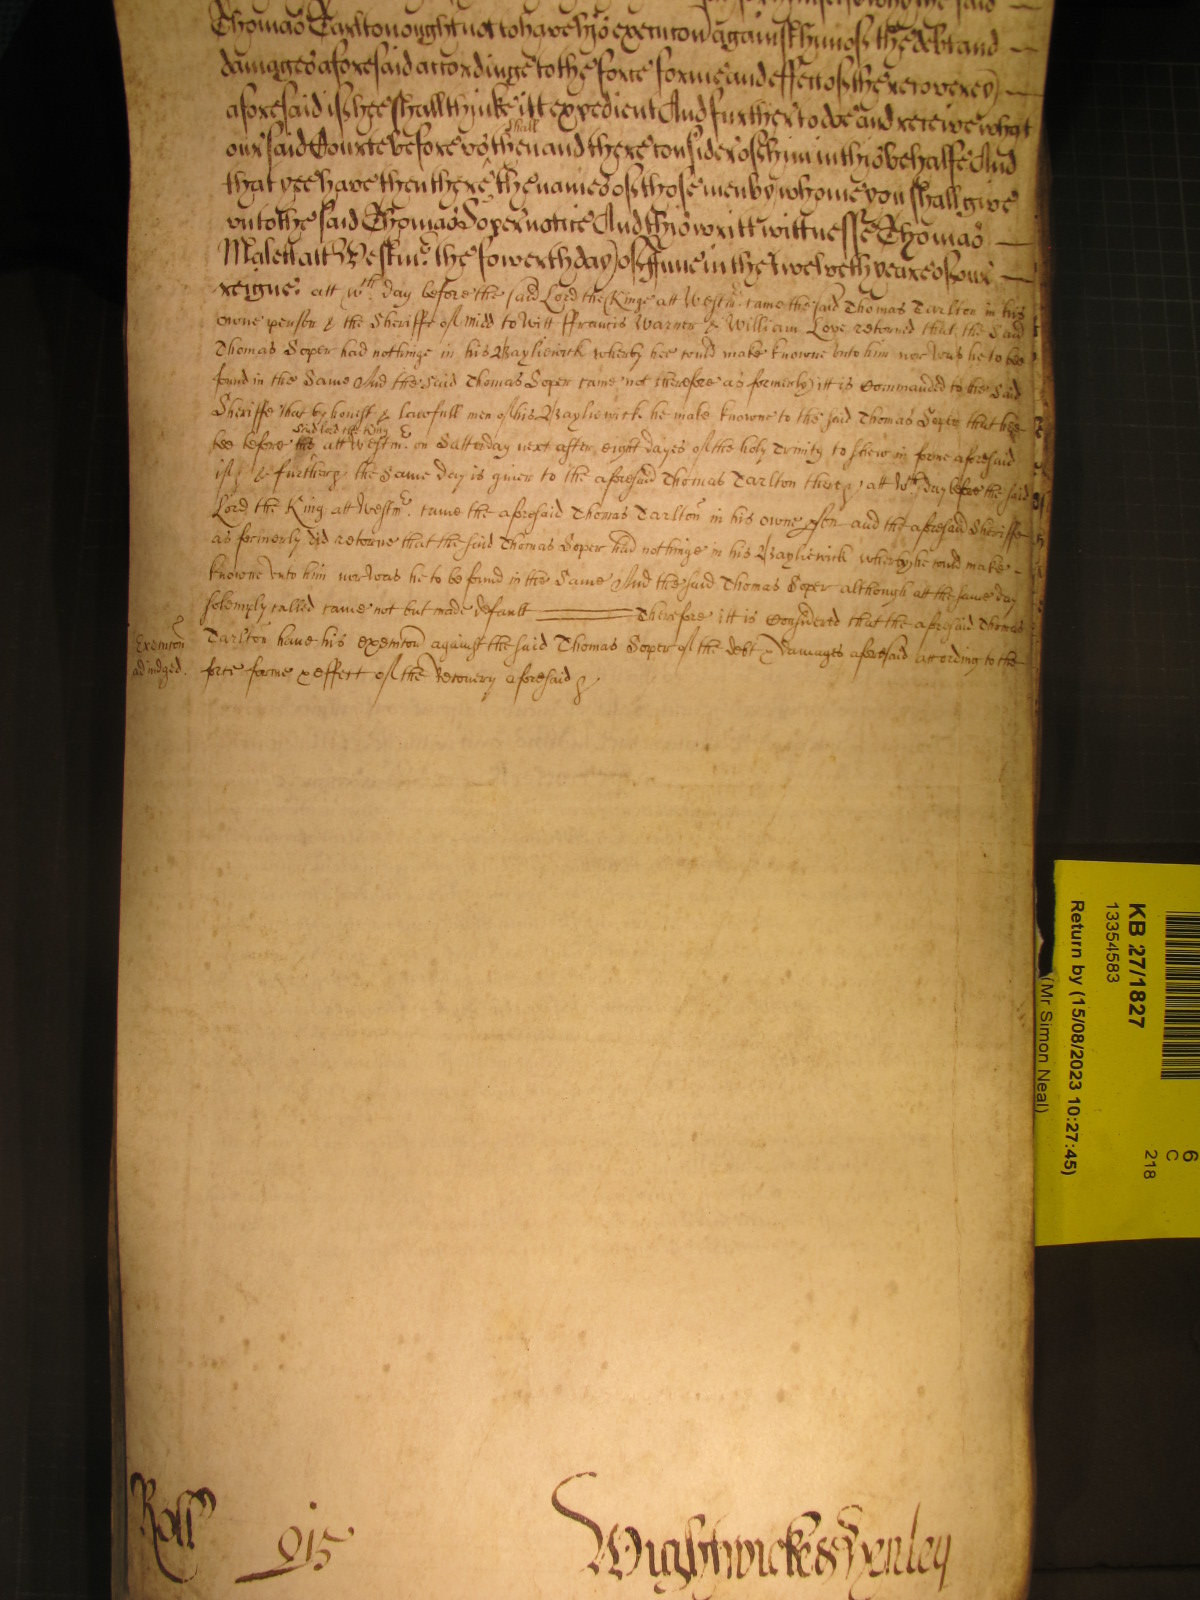 said
Thomas Tarlton ought not to have his execucon against him of the debt and
damages aforesaid accordinge to the force forme and effect of the recoverey
aforesaid if hee shall thinke itt expedient And further to doe and receive what
our said Courte before us shall then and there consider of him in this behalfe And
that yee have then there the names of those men by whome you shall give
unto the said Thomas Soper notice And this writt wittnesse Thomas
Malett att Westm̃. the fowerth day of June in the twelveth yeare of our
reigne. att wch day before the said Lord the Kinge att Westm̃. came the said Thomas Tarlton in his
owne person & the Sheriffe of Midd to witt ffrancis Warner & William Love retorned that the said
Thomas Soper had nothinge in his Bayliewick wherby hee could make knowne unto him nor was he to bee
found in the Same And the said Thomas Soper came not therefore as formerly itt is Commanded to the said
Sheriffe that by honest & lawfull men of his Bayliewick he make knowne to the said Thomas Soper that hee
bee before the said lord the King att Westm̃. on Satterday next after eight dayes of the holy Trinity to shew in forme aforesaid
if & further the Same day is given to the aforesaid Thomas Tarlton there att wch day before the said
Lord the King att Westm̃. came the aforesaid Thomas Tarlton in his owne pson and the aforesaid Sheriffe
as formerly did retorne that the said Thomas Soper had nothinge in his Bayliewick wherby he could make
knowne unto him nor was he to be found in the Same And the said Thomas Soper although att the same day
solemply called came not but made default Therefore itt is Considered that the aforesaid Thomas
Execucon
adiudged.
Tarlton have his execucon against the said Thomas Soper of the debt & damages aforesaid according to the
force forme & effect of the Recovery aforesaid
Roll 915
Wightwicke & Henley
KB 27/1827
13354583
Return by (15/08/2023 10:27:45)
(Mr Simon Neal)
6
C
218